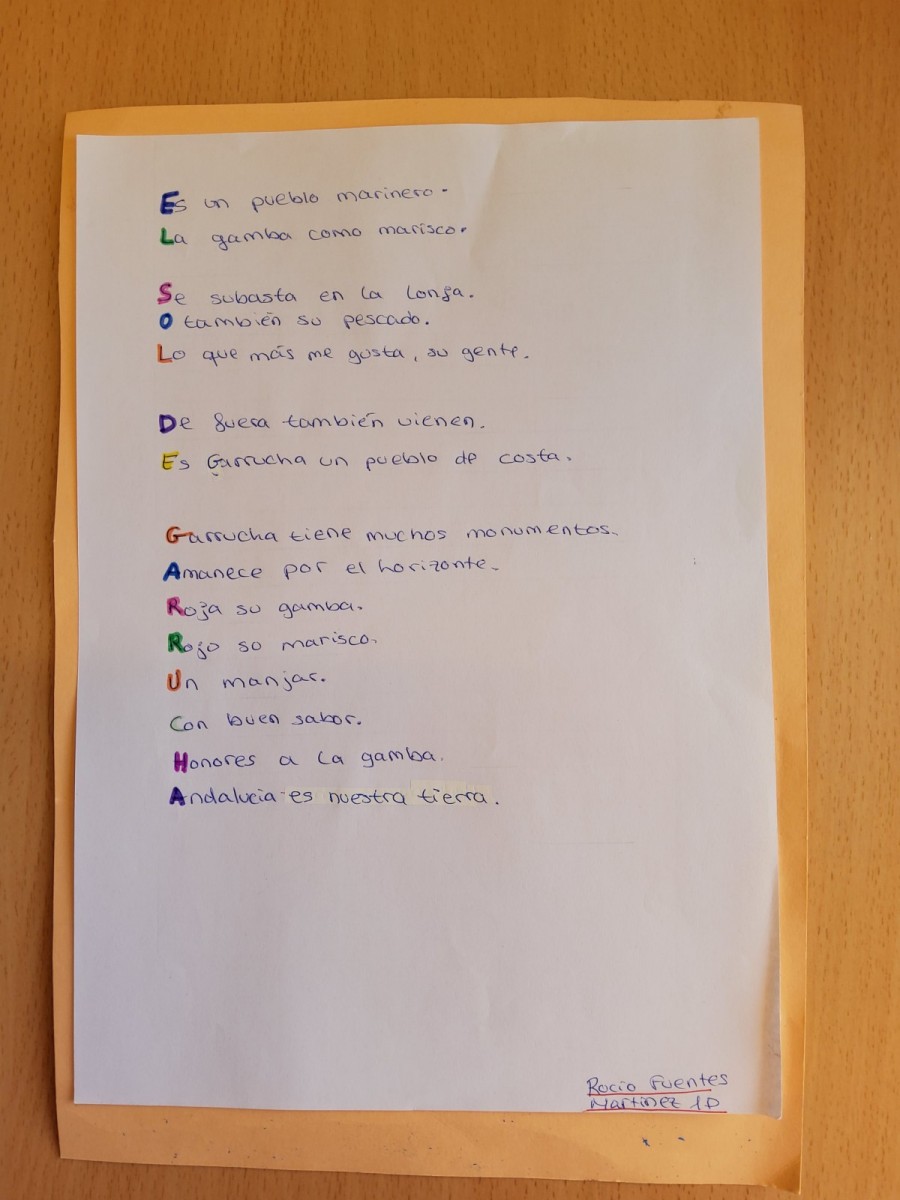 Es un pueblo marinero.
La gamba como marisco.
Se subasta en la lonja.
O también su pescado.
Lo que más me gusta, su gente.
De fuera también vienen.
Es Garrucha un pueblo de costa.
Garrucha tiene muchos monumentos.
Amanece por el horizonte.
Roja su gamba.
Rojo so marisco.
Un manjar.
Con buen sabor.
Honores a la gamba.
Andalucia es nuestra tierra.
Rocio Fuentes
Martinez 1D